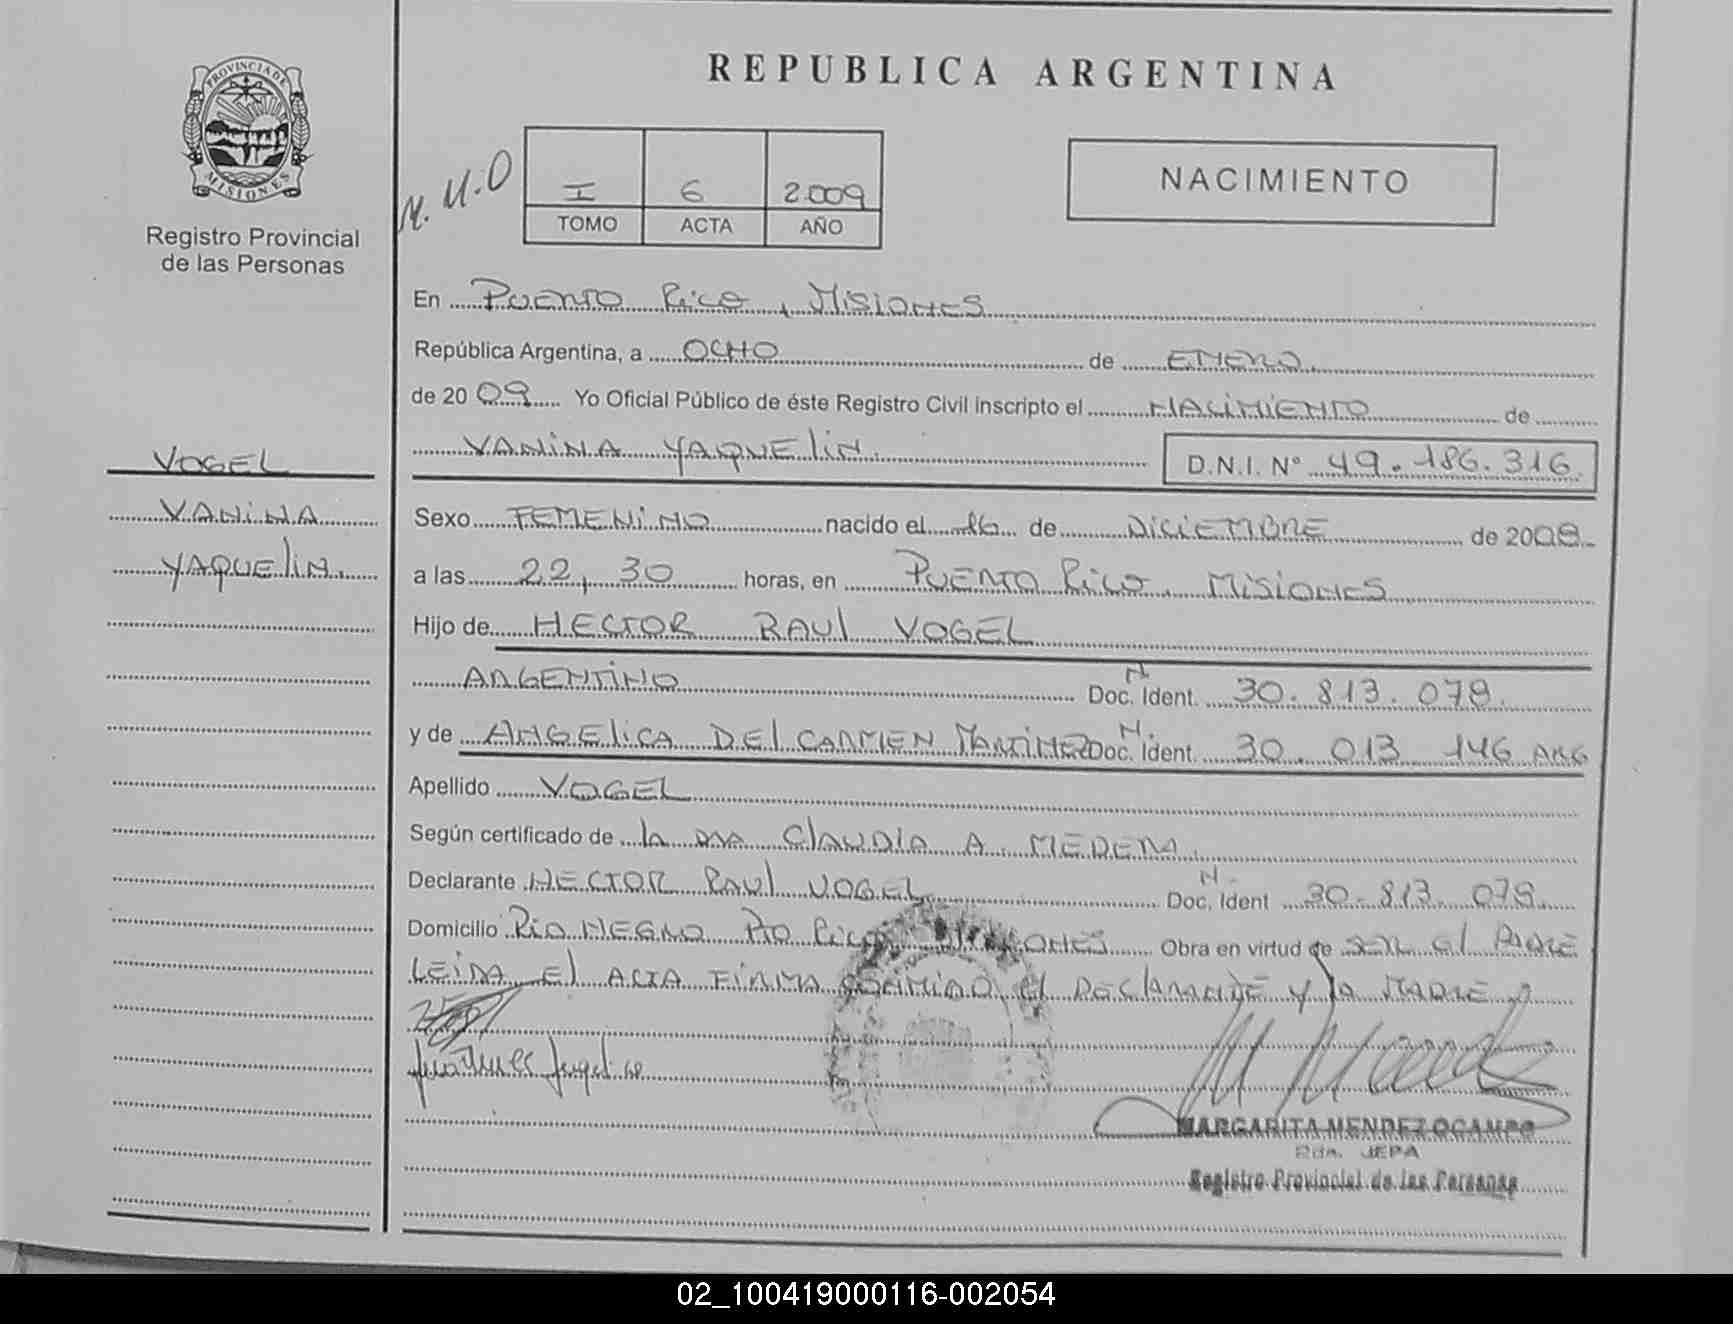 REPUBLICA ARGENTINA
PROVINCIA DE
MISIONES
Registro Provincial
de las Personas
M.U.O
I 6 2009
TOMO ACTA AÑO
NACIMIENTO
En PUERTO RICO, MISIONES
República Argentina, a OCHO de ENERO.
de 2009 Yo Oficial Público de éste Registro Civil inscripto el NACIMIENTO de
VANINA YAQUELIN. D.N.I. N° 49.186.316.
VOGEL
VANINA
YAQUELIN.
Sexo FEMENINO nacido el 16 de DICIEMBRE de 2008
a las 22,30 horas, en PUERTO RICO, MISIONES
Hijo de HECTOR RAUL VOGEL
ARGENTINO Doc. N Ident. 30.813.078.
y de ANGELICA DEL CARMEN MARTINEZ Doc. N. Ident. 30.013 146 ARG
Apellido VOGEL
Según certificado de la DRA CLAUDIA A.
Declarante HECTOR RAUL VOGEL Doc. N. Ident 30.813.078.
Domicilio RIO NEGRO PTO RICO MISIONES Obra en virtud de SER el PADRE
LEIDA El ACTA FIRMA el DECLARANTE Y la MADRE
MARGARITA MENDEZ OCAMPO
2da. JEFA
Registro Provincial de las Personas
02_100419000116-002054